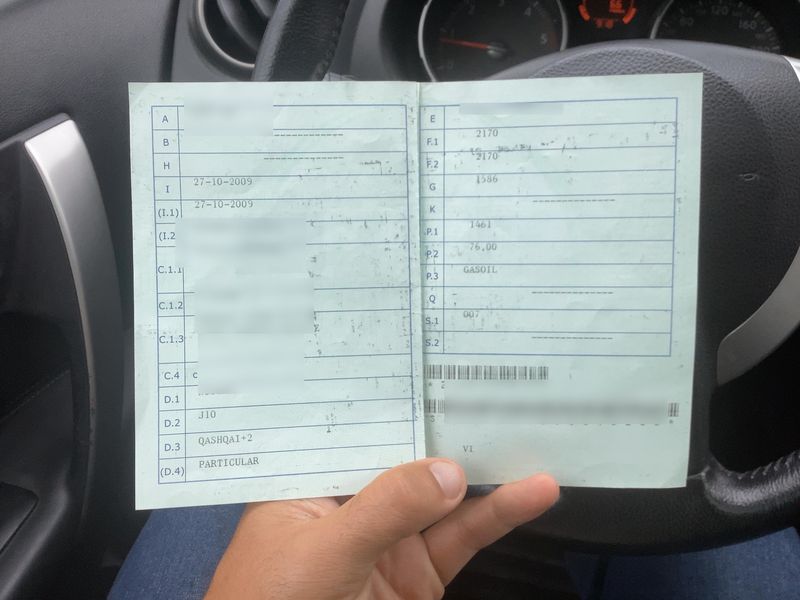 A
B ----------------
H ----------------
I 27-10-2009
(I.1) 27-10-2009
(I.2
C.1.1
C.1.2
C.1.3
C.4 C
D.1
D.2 J10
D.3 QASHQAI+2
(D.4) PARTICULAR
E
F.1 2170
F.2 2170
G 1586
K ----------------
P.1 1461
P.2 76,00
P.3 GASOIL
Q ----------------
S.1 007
S.2 ----------------
VI
3
4
5
80
120
160